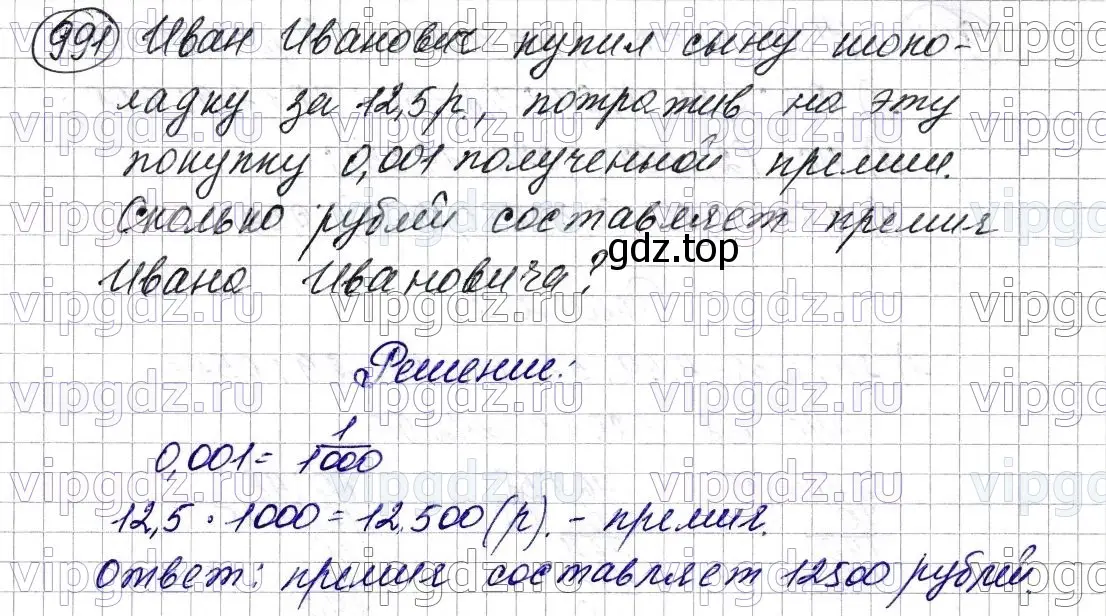 991 Иван Иванович купил сыну шоко-
ладку за 12,5 р., потратив на эту
покупку 0,001 полученной премии.
Сколько рублей составляет премия
gdz.top
Ивана Ивановича?
Решение:
0,001 = 1/1000
12,5 · 1000 = 12 500 (р). - премия.
Ответ: премия составляет 12500 рублей.
vipgdz.ru